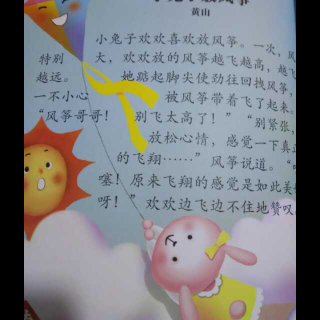 小兔子放风筝
黄山
小兔子欢欢喜欢放风筝。一次，风
特别大，欢欢放的风筝越飞越高，越飞
越远。她踮起脚尖使劲往回拽风筝，
一不小心被风筝带着飞了起来，
“风筝哥哥！别飞太高了！”“别紧张，
放松心情，感觉一下真正
的飞翔……”风筝说道。“
噻！原来飞翔的感觉是如此美
呀！”欢欢边飞边不住地赞叹